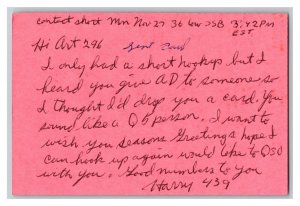 contact short Mon Nov 27 36 low SSB 3:42 Pm
EST
Hi Art 296 Sent Card
I only had a short hookup but I
heard you give AD to someone so
I thought I'd drop you a card. You
sound like a Q5 person. I want to
wish you Seasons Greetings hope I
can hook up again would like to QSO
with you. Good numbers to you
Harry 439